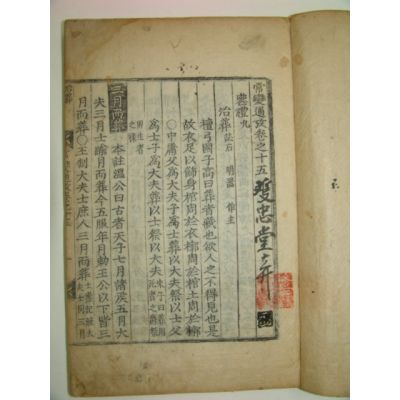 常變通攷卷之十五
雙忠堂弆
喪禮九
治葬 誌石 明器 作主
檀弓國子高曰葬者藏也欲人之不得見也是
故衣足以飾身棺周於衣槨周於棺土周於槨
○中庸父爲大夫子爲士葬以大夫祭以士父
爲士子爲大夫葬以士祭以大夫
三月而葬 本註溫公曰古者天子七月諸侯五月大
夫三月士踰月而葬今五服年月勅王公以下皆三
月而葬○王制大夫士庶人三月而葬